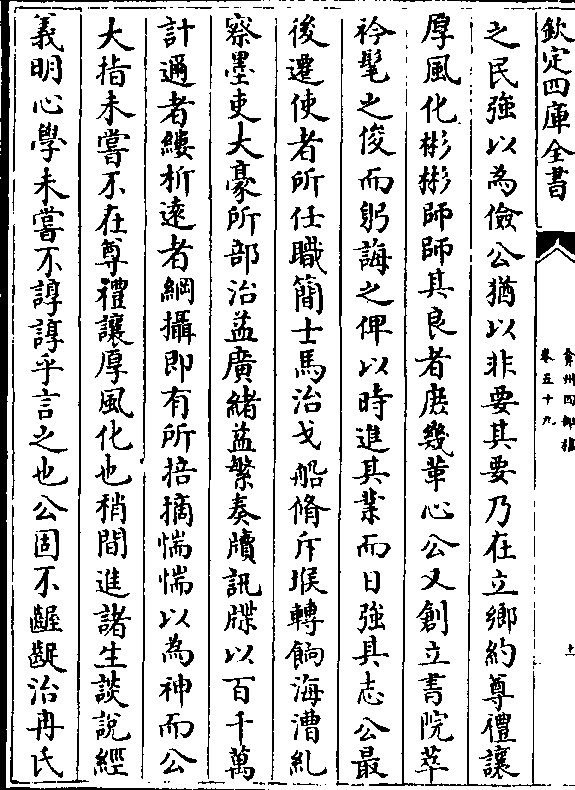 欽定四庫全書
弇州四部稿
卷五十九
之民強以為儉公猶以非要其要乃在立鄉約尊禮讓
厚風化彬彬師師其良者庶幾革心公又創立書院萃
衿髦之俊而躬誨之俾以時進其業而日強其志公最
後遷使者所任職簡士馬治戈船脩斥堠轉餉海漕糺
察墨吏大豪所部治益廣緒益繁奏牘訊牒以百千萬
計邇者縷析遠者綱攝即有所掊摘惴惴以為神而公
大指未嘗不在尊禮讓厚風化也稍間進諸生談說經
義明心學未嘗不諄諄乎言之也公固不齷齪治冉氏